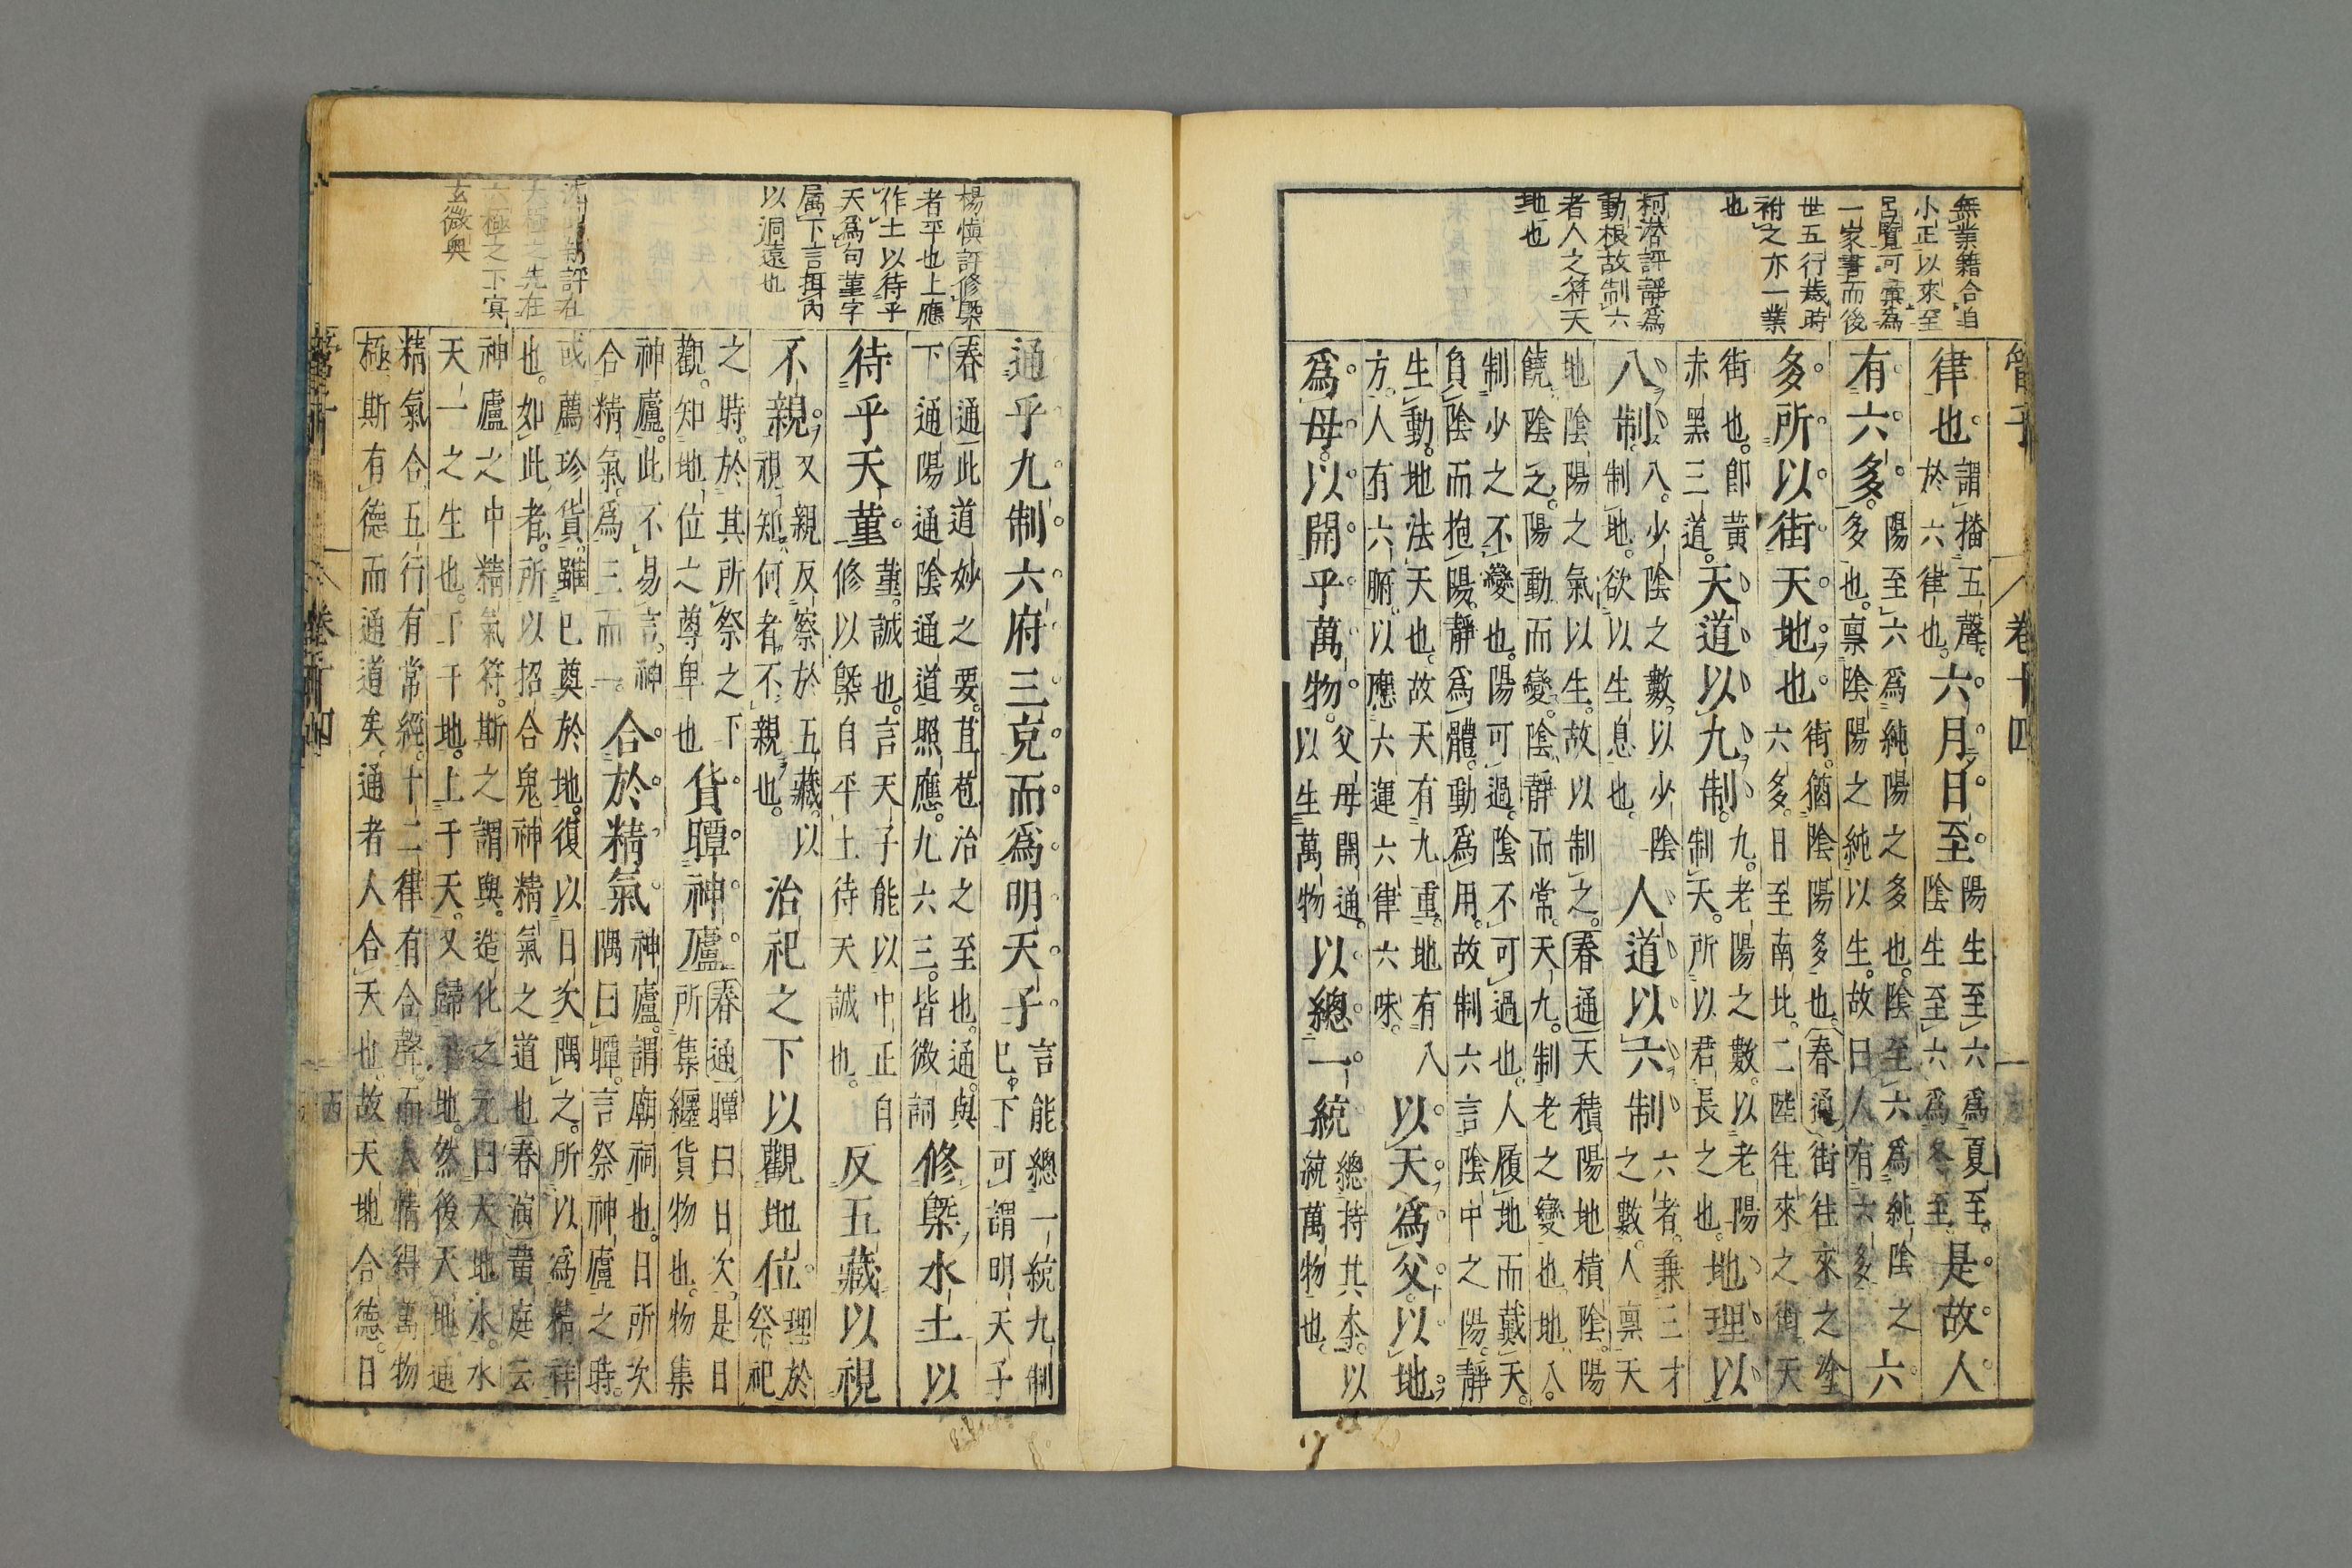 管子
卷十四
無業籍合自
小正以來至
呂覽可彙為
一家書而後
世五行歲時
附之亦一業
也
柯潜評靜為
動根故制六
者人之符天
地也
律也。謂播五聲。於六律也。六月日至。陽生至六為夏至。陰生至六為冬至。是故人
有六多。陽至六為純陽之多也。陰至六為純陰之多也。稟陰陽之純以生。故曰人有六多六
多所以街天地也。街。猶陰陽多也。六多。日至南北。二陸往來之街天
街也。即黃赤黑三道。天道以九制。九。老陽之數。以老陽制天。所以君長之也。地理以
八制。八。少陰之數。以少陰制地。欲以生息也。人道以六制。六者。兼三才之數。人稟天
地陰陽之氣以生。故以制之。春通天積陽地積陰。陽
饒陰乏。陽動而變。陰靜而常。天九。制老之變也地。八。
制少之不變也。陽可過。陰不可過也。人履地而戴天。
負陰而抱陽。靜為體。動為用。故制六言陰中之陽。靜
生動。地法天也。故天有九重。地有八
方。人有六腑。以應六運六律六味。以天為父。以地
為母。以開乎萬物。父母開通。以生萬物以總一統總持其本。以統萬物也。
楊慎評修㮣
者平也上應
作土以待乎
天為句菫字
屬下言揖內
以洞遠也
評在
太極之先在
六極之下寘
玄微奥
通乎九制六府三克而為明天子言能總一統九制已下可謂明天子
春通此道妙之要。苴苞治之至也。通與
下通陽通陰通道照應。九六三。皆微詞修㮣水土以
待乎天菫。菫。誠也。言天子能以中正自修以㮣自平土待天誠也。反五藏以視
不親。又親反察於五藏。以視知何者不親也。治祀之下以觀地位理於祭祀
之時。於其所祭之下觀。知地位之尊卑也貨曋神廬春通曋曰日次。是日所集纒貨物也。物集
神廬。此不易言。神合精氣為三而一。合於精氣神廬。謂廟祠也。日所次隅曰曋。言祭神廬之時。
或薦珍貨。雖已奠於地。復以日次隅之。所以為精祥
也。如此者。所以招合鬼神精氣之道也春演黃庭云
神廬之中精氣符。斯之謂與。造化之元曰天地水。水
天一之生也。丁于地。上于天。又歸于地。然後天地通
精氣合。五行有常經。十二律有合聲。而人情得萬物
極。斯有德而通道矣。通者人合天也。故天地合德。日